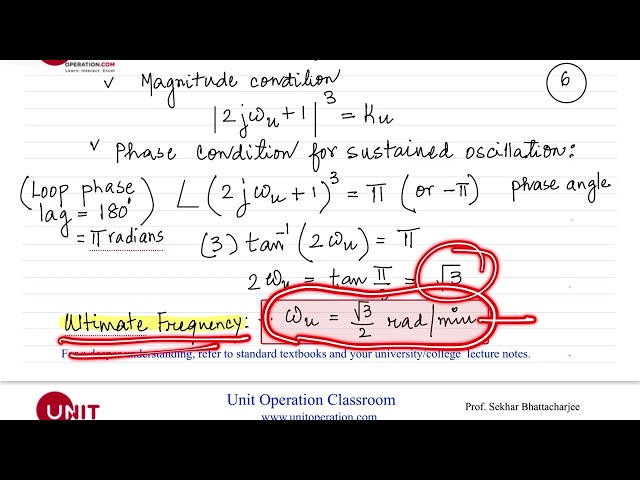 OPERATION.COM
Learn. Interact. Excel
✓ Magnitude condition
6
|2jωu+1|³ = Ku
✓ Phase condition for sustained oscillation:
(Loop phase lag = 180°) ∠(2jωu+1)³ = π (or -π) phase angle
= π radians (3) tan⁻¹(2ωu) = π
2ωu = tan π/3 = √3
Ultimate Frequency: ωu = √3/2 rad/min
For a deeper understanding, refer to standard textbooks and your university/college lecture notes.
UNIT
Unit Operation Classroom
www.unitoperation.com
Prof. Sekhar Bhattacharjee